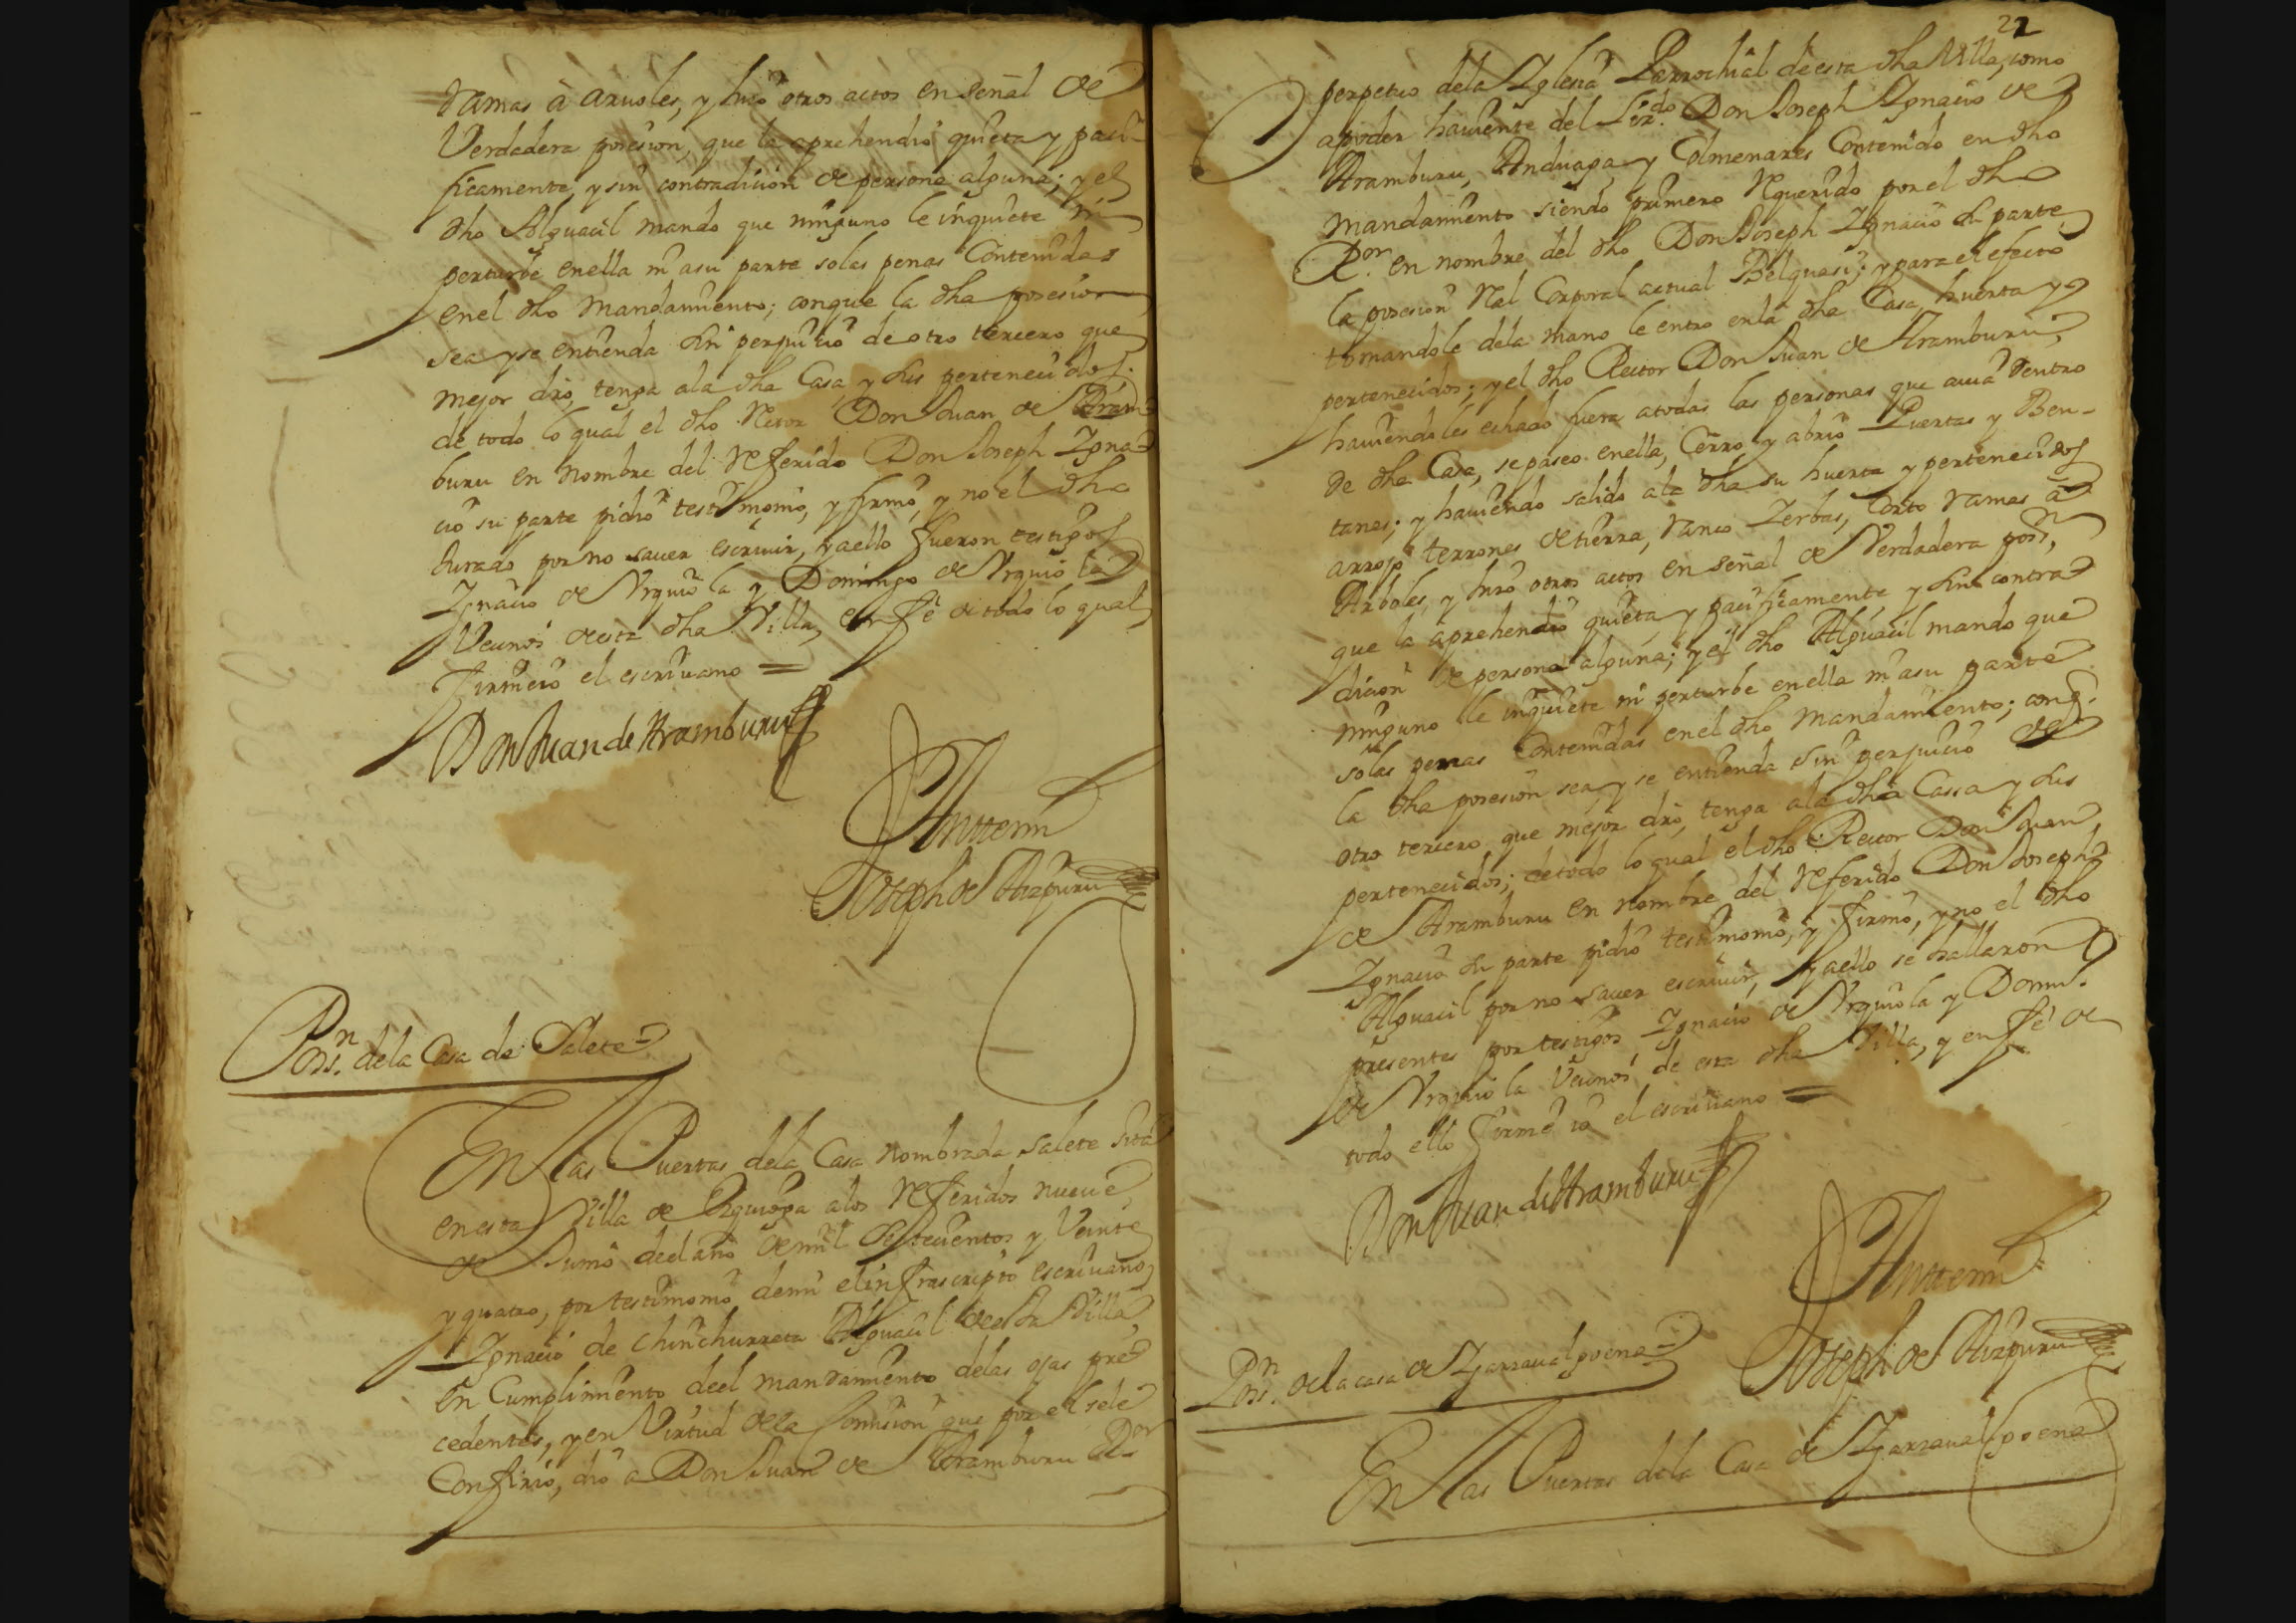 ramas à aruoles, y hizo otros actos en señal de
Verdadera posesion, que la aprehendio quieta y paci-
ficamente, y sin contradicion de persona alguna; y el
dho Alguacil mando que ninguno le inquiete ni
perturbe en ella ni a su parte solas penas Contenidas
en el dho Mandamiento; con que la dha posesion
sea y se entienda sin perjuicio de otro tercero que
mejor dro, tenga ala dha Casa, y sus pertenecidos.
de todo lo qual el dho Retor Don Juan de Aram
buru en Nombre del Referido Don Joseph Igna
cio su parte pidio testimonio, y firmó, y no el dho
Jurado por no sauer escriuir, y aello fueron testigos
Ignacio de Vrquiola y Domingo de Vrquiola
Vecinos desta dha Villa, en fé de todo lo qual
firme io el escriuano =
Don Juan de Aramburu
Antemi
Joseph de Aizpuru
Posn. dela Casa de Salete
En las Puertas dela Casa Nombrada Salete sita
en esta Villa de Ezquioga alos Referidos nueue
de Junio del año de mil Setecientos y Veinte
y quatro, por testimonio de mi el infrascripto escriuano
Ignacio de Chinchurreta Alguacil desta Villa,
en Cumplimiento del mandamiento delas ojas pre
cedentes, y en Virtud dela Comision que por el sele
Confirio, dio a Don Juan de Aramburu Ror
22
perpetuo dela Iglesia Parrochial de esta dha Villa, como
apoder hauiente del Lizdo. Don Joseph Ignacio de
Aramburu, Anduaga, y Colmenares Contenido en dho
Mandamiento siendo primero Requerido por el dho
Ror. en nombre del dho Don Joseph Ignacio su parte,
la posesion Ral Corporal actual Belquasi; y para el efecto
tomandole dela mano le entro en la dha Casa, huerta y
pertenecidos; y el dho Rector Don Juan de Aramburu,
hauiendoles echado fuera atodas las personas que auia dentro
de dha Casa, se paseo en ella, Cerro, y abrio Puertas y Ben-
tanas; y hauiendo salido ala dha su huerta y pertenecidos
arrojo terrones de tierra, ranco Zerbas, Corto ramas à
Arboles, y hizo otros actos en señal de Verdadera posn,
que la aprehendio quieta y pacificamente y sin contra
dicion de persona alguna; y el dho Alguacil mando que
ninguno le inquiete ni perturbe en ella ni a su parte
solas penas Contenidas en el dho Mandamiento; conq.
la dha posesion sea y se entienda sin perjuicio de
otro tercero que mejor dro, tenga ala dha Cassa y sus
pertenecidos; de todo lo qual el dho Rector Don Juan
de Aramburu en Nombre del Referido Don Joseph
Ignacio su parte pidio testimonio, y firmó, y no el dho
Alguacil por no sauer escriuir, y aello se hallaron
presentes por testigos Ignacio de Vrquiola y Domi.
de Vrquiola Vecinos de esta dha Villa, y en fé de
todo ello firmé io el escriuano =
Don Juan de Aramburu
Antemi
Joseph de Aizpuru
Posn. dela casa de Yzarraualgoena
En las Puertas dela Casa de Yzarraualgoena